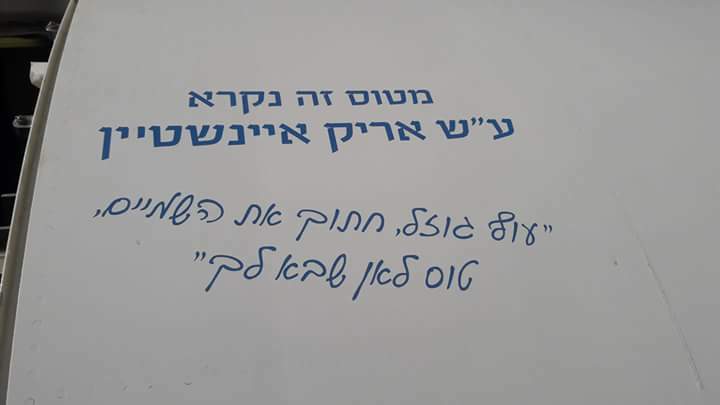 מטוס זה נקרא
ע"ש אריק איינשטיין
"עוף גוזל, חתוך את השמיים,
טוס לאן שבא לך"